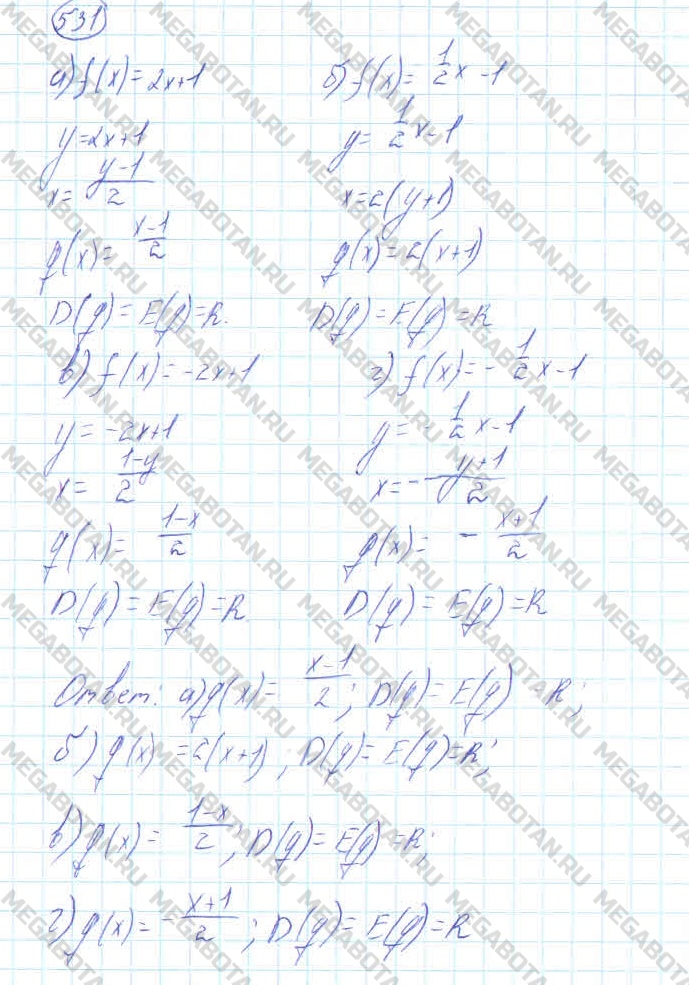 531
а) f(x) = 2x+1
y = 2x+1
x = (y-1)/2
g(x) = (x-1)/2
D(g) = E(g) = R.
б) f(x) = 1/2 x - 1
y = 1/2 x - 1
x = 2(y+1)
g(x) = 2(x+1)
D(g) = E(g) = R
в) f(x) = -2x+1
y = -2x+1
x = (1-y)/2
g(x) = (1-x)/2
D(g) = E(g) = R
г) f(x) = - 1/2 x - 1
y = - 1/2 x - 1
x = - (y+1)/2
g(x) = - (x+1)/2
D(g) = E(g) = R
Ответ: а) g(x) = (x-1)/2; D(g) = E(g) = R;
б) g(x) = 2(x+1), D(g) = E(g) = R;
в) g(x) = (1-x)/2; D(g) = E(g) = R;
г) g(x) = - (x+1)/2; D(g) = E(g) = R
MEGABOTAN.RU